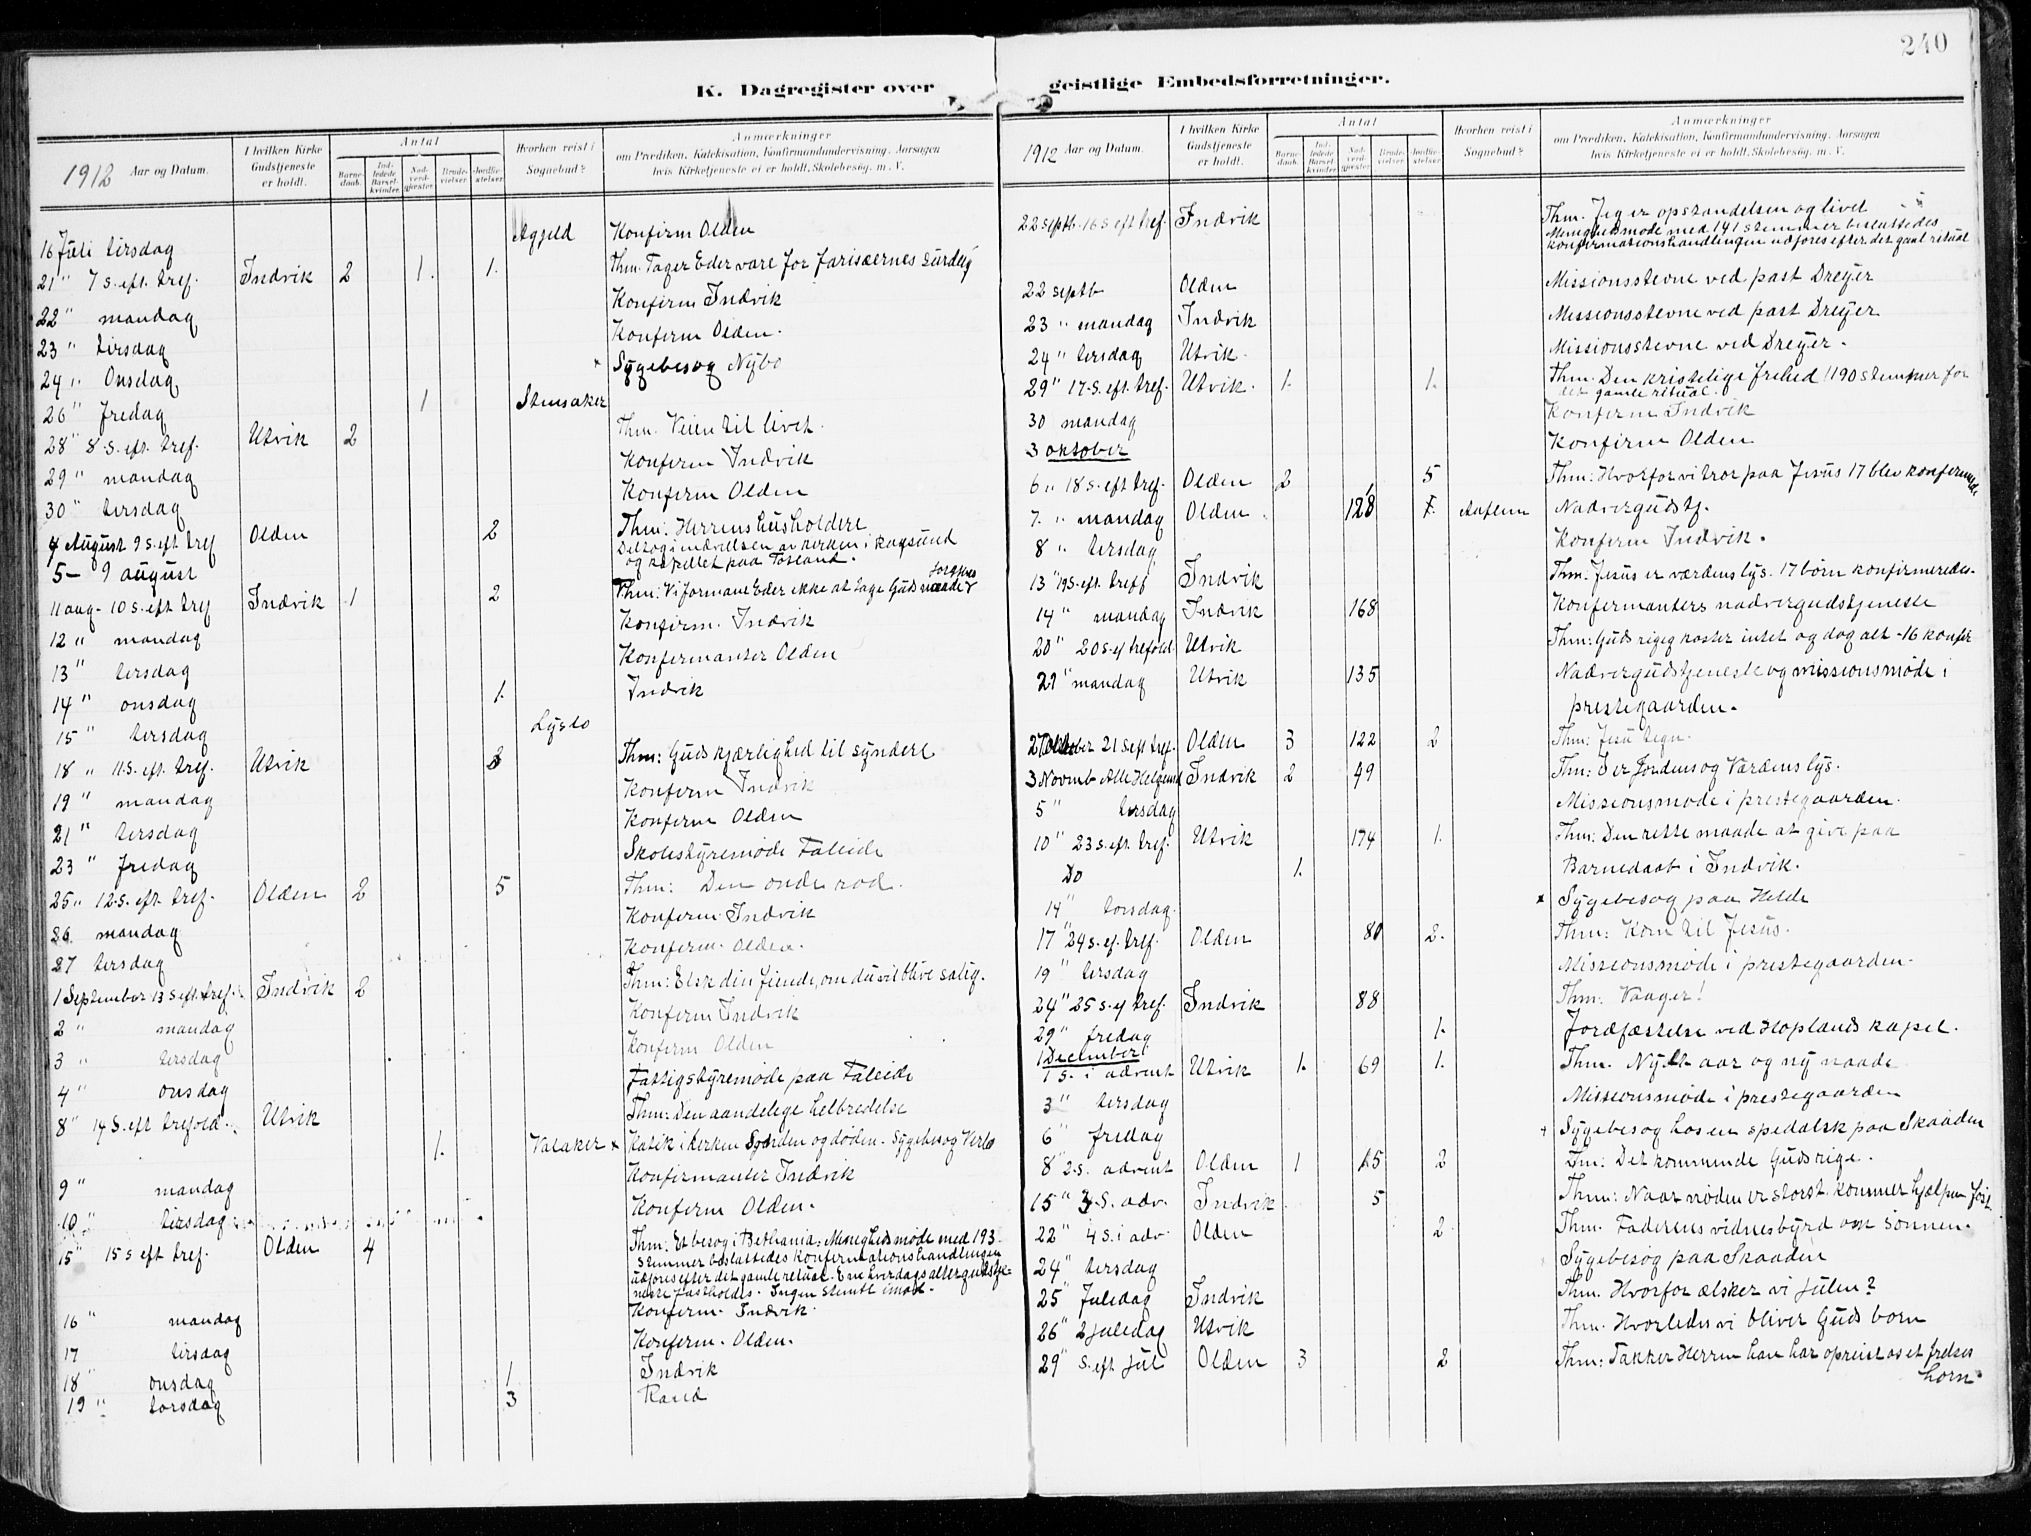 240
K. Dagregister over
1912 Aar og Datum.
I hvilken Kirke Gudstjeneste er holdt.
Antal
Barnedaab.
Indledede Barselkvinder.
Nadverdgjester.
Brudevielser.
Jordfæstelser.
Hvorhen reist i Sognebud?
Anmærkninger
om Prædiken, Katekisation, Konfirmandundervisning, Aarsagen
hvis Kirketjeneste ei er holdt, Skolebesøg. m. V.
16 Juli tirsdag Konfirm Olden
21 " 7 s. eft. tref. Indvik 2 1. 1. Thm. Tager Eder vare for farisæernes surdeig
22 " mandag Konfirm Indvik
23 " tirsdag Konfirm Olden.
24 " Onsdag Sygebesøg Nybø
26 " fredag 1 Stensaker
28 " 8 s. eft. tref. Utvik 2 Thm. Veien til livet.
29 " mandag Konfirm Indvik
30 " tirsdag Konfirm Olden
4 August 9 s. eft tref Olden 2 Thm: Herrens husholdere
5 – 9 august Deltog i indvielsen av kirken i
og kapellet paa
11 aug - 10 s. eft tref Indvik 1 2 Thm: Vi formane Eder ikke at tage Guds naade forgjæves
12 " mandag Konfirm. Indvik
13 " tirsdag Konfirmanter Olden
14 " onsdag 1. Indvik
15 " tersdag
18 " 11 s. eft. tref. Utvik 3 Thm: Guds kjærlighed til syndere
19 " mandag Konfirm Indvik
21 " tirsdag Konfirm Olden
23 " fredag Skolestyremøde Faleide
25 " 12 s. eft. tref. Olden 2 5 Thm: Den onde rod.
26 mandag Konfirm. Indvik
27 tirsdag Konfirm. Olden.
1 September 13 s eft. tref. Indvik 2 Thm: Elsk din fiende, om du vil blive salig.
2 " mandag Konfirm Indvik
3 " tirsdag Konfirm Olden
4 " onsdag Fattigstyremøde paa Faleide
8 " 14 S. eft trefold. Utvik Thm: Den aandelige helbredelse
1. Valaker x Katik i kirken Synden og døden. Sygebesøg
9 " mandag Konfirmanter Indvik
10 " tirsdag Konfirm Olden.
15 " 15 s eft tref. Olden 4 Thm: Et besøg i Bethania: Menighedsmøde med 193
stemmer besluttedes konfirmationshandlingen
udføres efter det gamle retual. Ene hverdags altergudstje-
neste fastholdes. Ingen stemte imod.
16 " mandag Konfirm. Indvik.
17 tirsdag Konfirm. Olden.
18 " onsdag 1 Indvik
19 " torsdag 3 Rand
geistlige Embedsforretninger.
1912 Aar og Datum.
I hvilken Kirke Gudstjeneste er holdt.
Antal
Barnedaab.
Indledede Barselkvinder.
Nadverdgjester.
Brudevielser.
Jordfæstelser.
Hvorhen reist i Sognebud?
Anmærkninger
om Prædiken, Katekisation, Konfirmandundervisning, Aarsagen
hvis Kirketjeneste ei er holdt, Skolebesøg. m. V.
22 septb. 16 s eft tref. Indvik Thm. Jeg er opstandelsen og livet
Menighedsmøde med 141 stemmer besluttedes
konfirmationshandlingen udføres efter det gaml retual
22 septb Olden Missionsstevne ved past Dreyer
23 " mandag Indvik Missionsstevne ved past Dreyer
24 " tersdag Utvik. Missionsstevne ved Dreyer.
29 " 17 s. eft. tref. Utvik. 1. 1. Thm. Den kristelige frehed 190 stemmer for
det gamle retual.
30 mandag Konfirm Indvik
3 oktober Konfirm Olden
6 " 18 s. eft tref. Olden 2 5 Thm: Hvorfor vi tror paa Jesus 17 blev konfirmede
7. " mandag Olden 128 Nadvergudstj.
8 " tersdag Konfirm Indvik.
13 " 19 s. eft treff Indvik Thm: Jesus er værdens lys. 17 børn konfirmeredes
14 " mandag Indvik 168 Konfermanters nadvergudstjeneste
20 " 20 s. ef trefold Utvik Thm: Guds rige koster intet og dog alt - 16 konfir
21 " mandag Utvik 135 Nadvergudstjeneste og missionsmøde i
prestegaarden.
27 oktober 21 s eft tref. Olden 3 122 2 Thm: Jesu tegn.
3 Novemb Alle Helgensd Indvik 2 49 Thm: I er Jordens og Værdens lys.
5 " tirsdag Missionsmøde i prestegaarden.
10 " 23 s. eft. tref. Utvik 174 1. Thm: Den rette maade at give paa
Do 1. Barnedaab i Indvik.
14 " torsdag. x Sygebesøg paa Helde
17 " 24 s. ef. tref. Olden 80 2. Thm: Kom til Jesus.
19 " tersdag Missionsmøde i prestegaarden.
24 " 25 s. ef tref. Indvik 88 Thm: Vaager!
29 " fredag 1. Jordfæstelse ved Hoplands kapel.
1 December
1 s. i advent Utvik 1. 69 1. Thm. Nytt aar og ny naade
3 " tersdag Missionsmøde i prestegaarden
6 " fredag + Sygebesøg hos en spedalsk paa Skaaden
8 " 2 s. advent Olden 1 15 2 Tm: Det kommende Guds rige.
15 " 3 s. adv. Indvik 5 Thm: Naar nøden er størst kommer hjælpen
22 " 4 s. i adv. Olden 2 Thm. Faderens vidnesbyrd om sønnen.
24 " tersdag Sygebesøg paa Skaaden
25 " Juledag Indvik Thm. Hvorfor elsker vi julen?
26 " 2 juledag Utvik Thm. Hvorledes vi bliver Guds børn
29 " s. eft jul Olden 3 2 Thm: Takker Herren han har opreist os et frelses
horn.